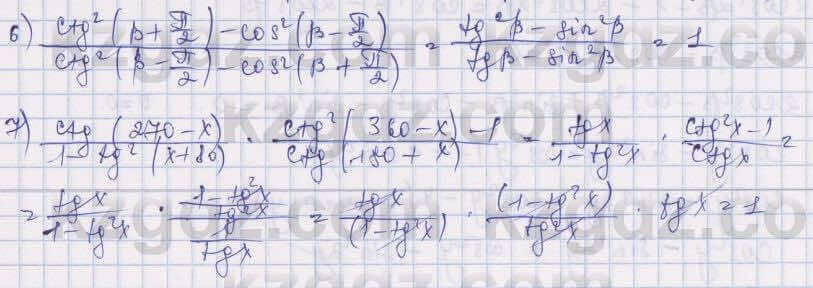 6) ctg²(β+π/2)-cos²(β-π/2) / ctg²(β-π/2)-cos²(β+π/2) = tg²β-sin²β / tgβ-sin²β = 1
7) ctg(270-x) / 1-tg²(x+180) · ctg²(360-x)-1 / ctg(180+x) = tgx / 1-tg²x · ctg²x-1 / ctgx =
= tgx / 1-tg²x · (1-tg²x / tg²x) / (1 / tgx) = tgx / (1-tg²x) · (1-tg²x) / tg²x · tgx = 1
kzgdz.com